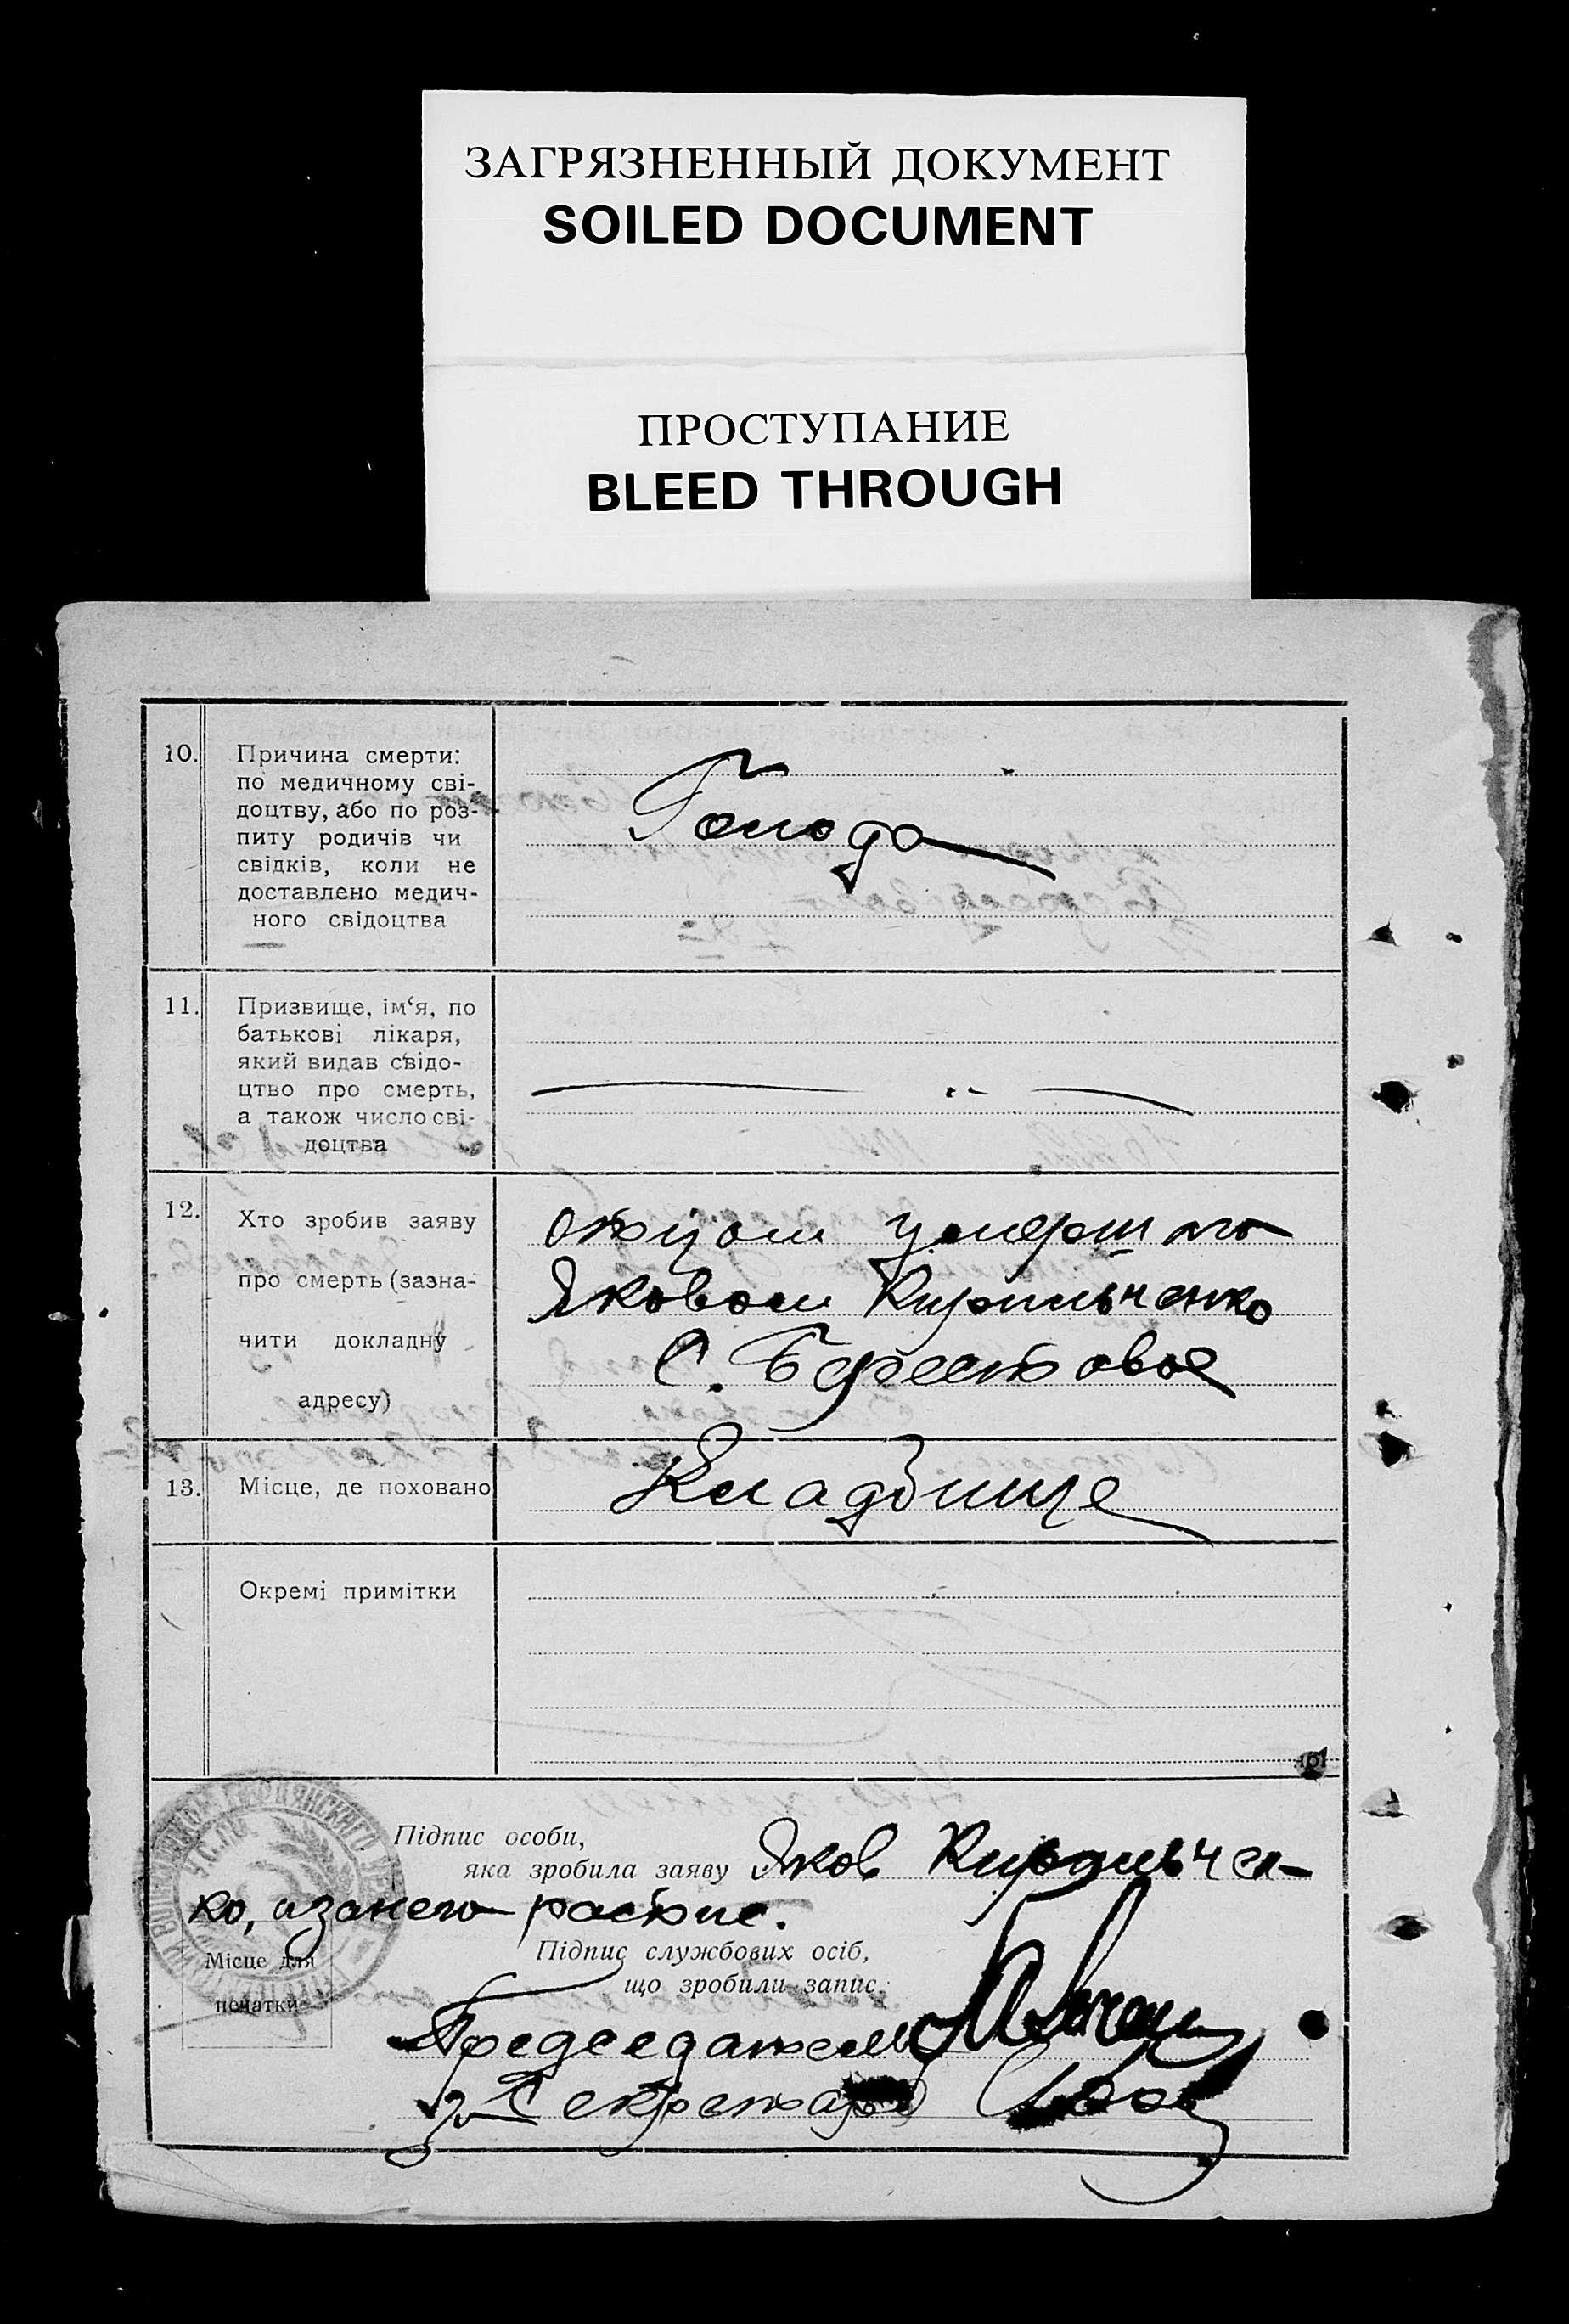 ЗАГРЯЗНЕННЫЙ ДОКУМЕНТ
SOILED DOCUMENT
ПРОСТУПАНИЕ
BLEED THROUGH
10. Причина смерти:
по медичному сві-
доцтву, або по роз-
питу родичів чи
свідків, коли не
доставлено медич-
ного свідоцтва
Голода
11. Призвище, ім‘я, по
батькові лікаря,
який видав свідо-
цтво про смерть,
а також число сві-
доцтва
12. Хто зробив заяву
про смерть (зазна-
чити докладну
адресу)
отцом умершого
Яковом Кирильченко
С. Берестовое
13. Місце, де поховано
Кладбище
Окремі примітки
Підпис особи,
яка зробила заяву Яков Кирильчен-
ко, азанего распис.
Підпис службових осіб,
що зробили запис:
Місце для
печатки
Председатель
за Секретаря